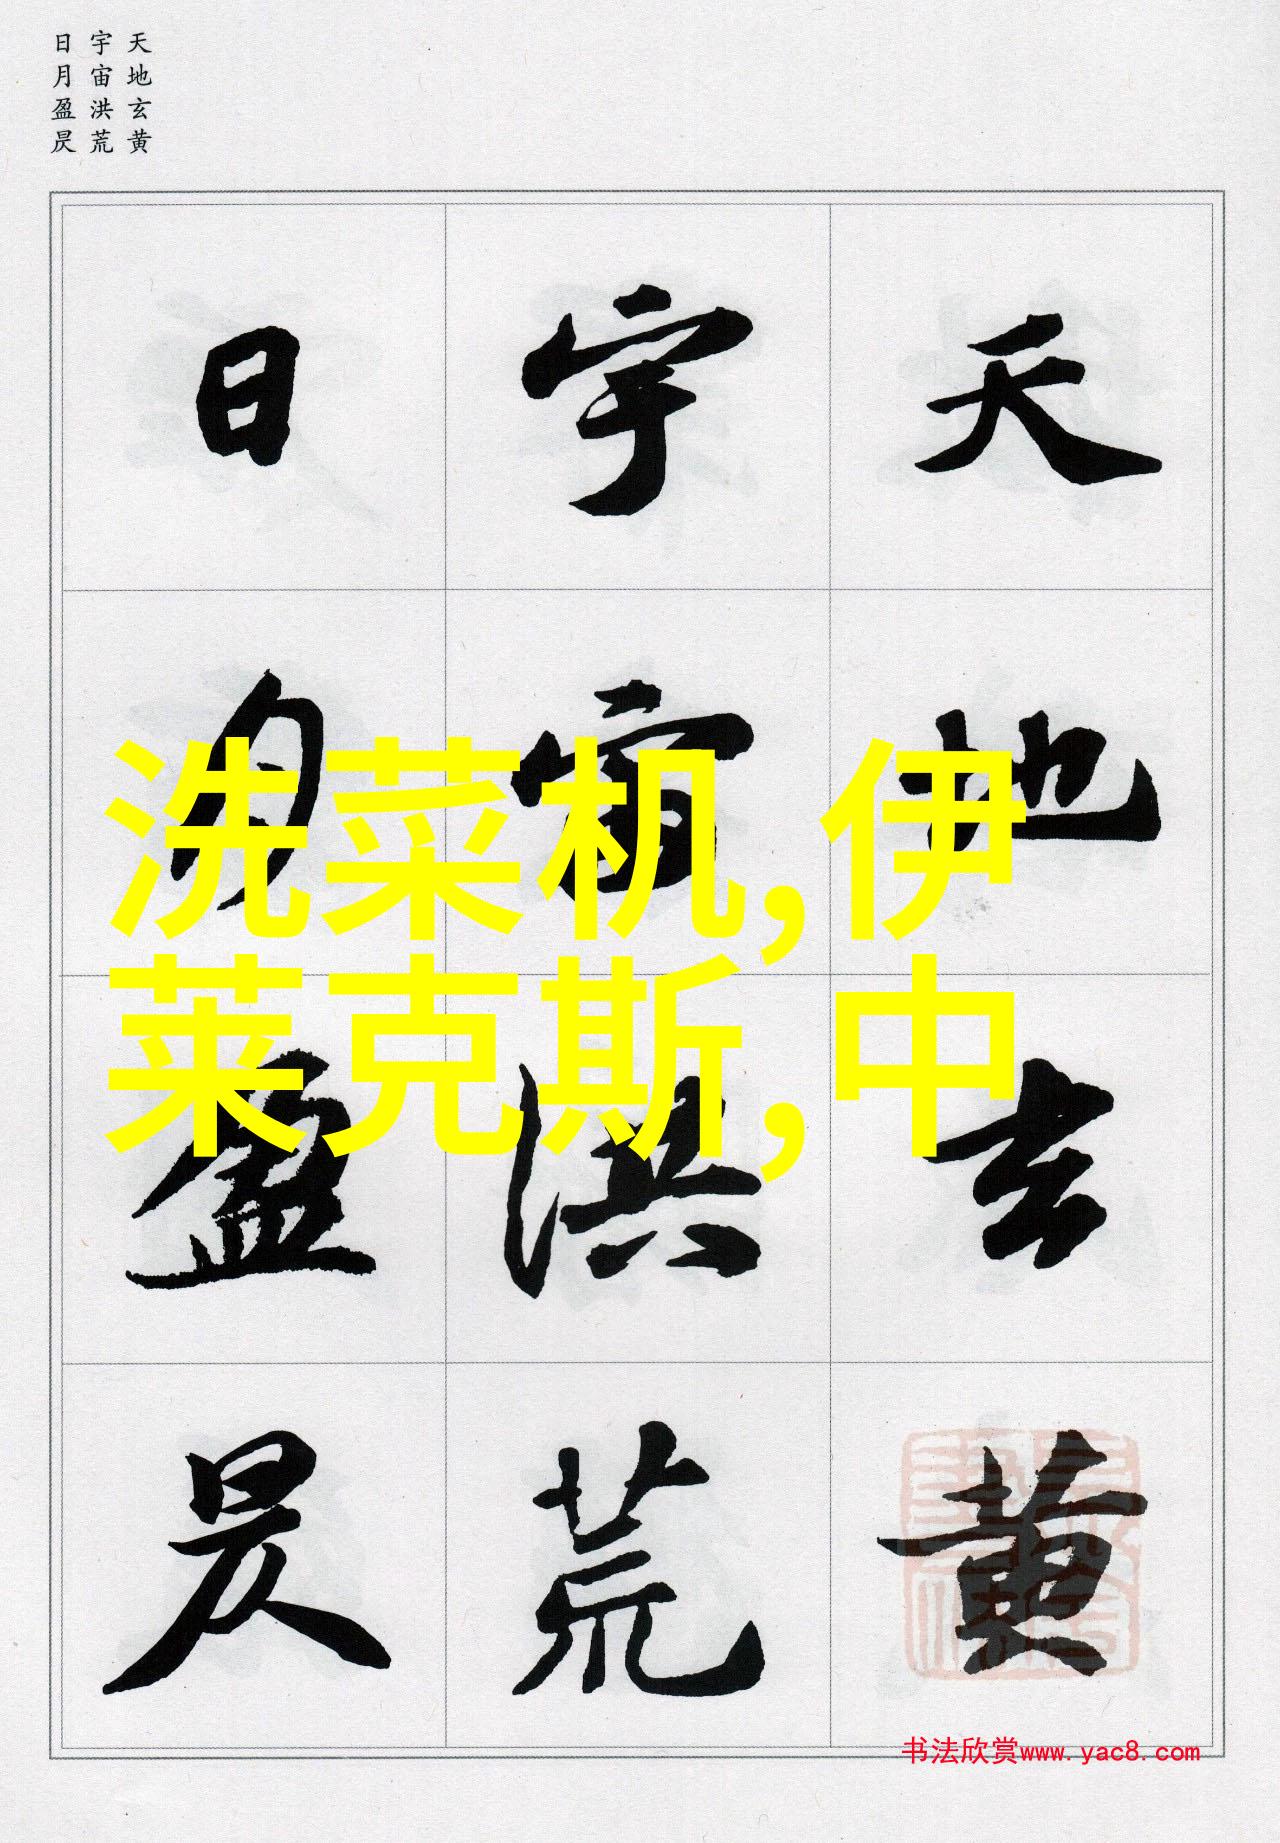 天地玄黄
宇宙洪荒
日月盈昃
天地玄黄
宇宙洪荒
日月盈昃
洗菜机,伊
莱克斯,中
书法欣赏www.yac8.com